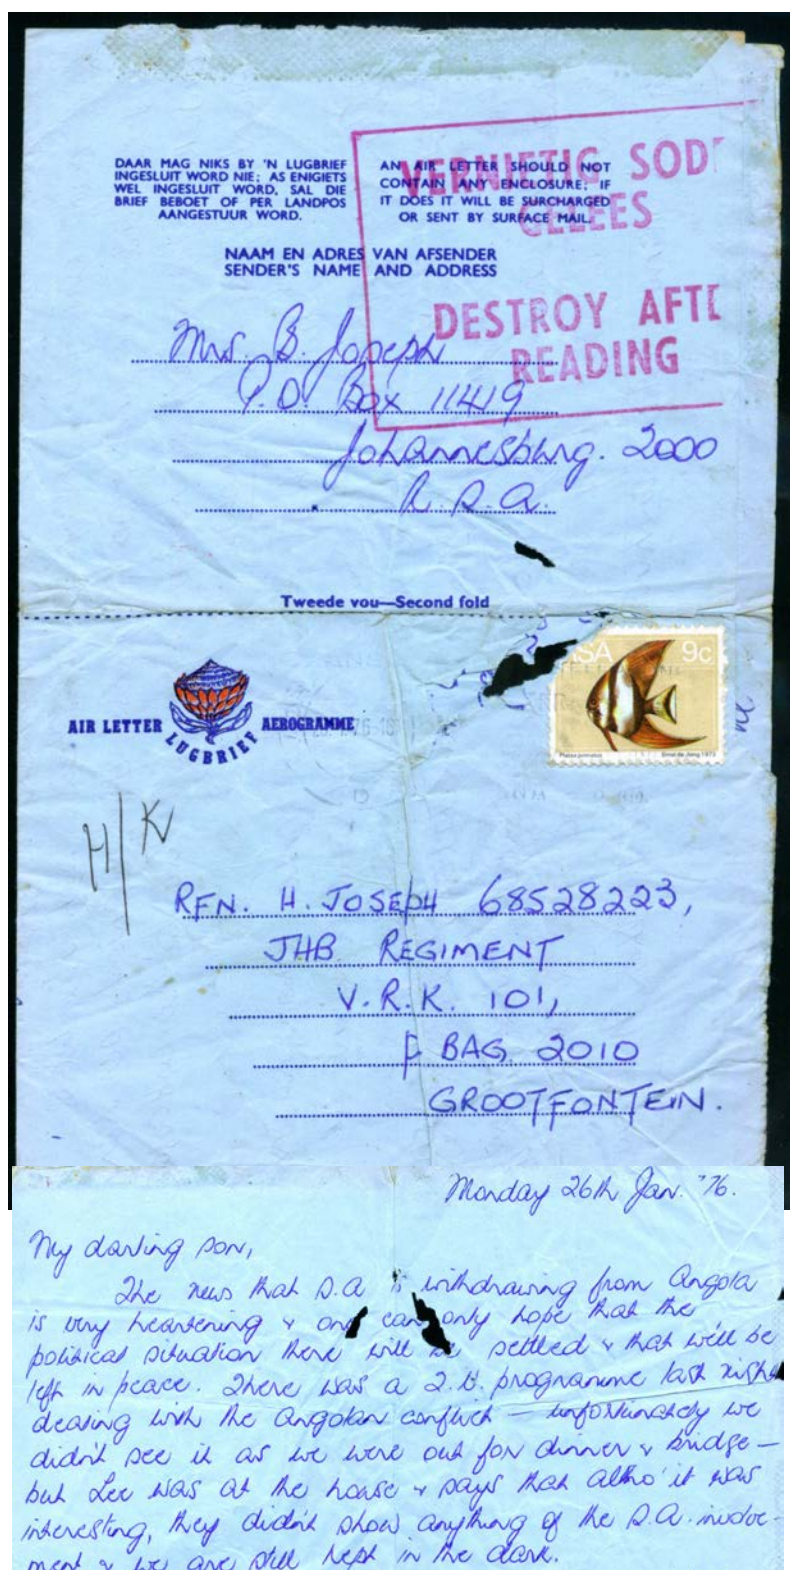 DAAR MAG NIKS BY 'N LUGBRIEF
INGESLUIT WORD NIE; AS ENIGIETS
WEL INGESLUIT WORD, SAL DIE
BRIEF BEBOET OF PER LANDPOS
AANGESTUUR WORD.
AN AIR LETTER SHOULD NOT
CONTAIN ANY ENCLOSURE; IF
IT DOES IT WILL BE SURCHARGED
OR SENT BY SURFACE MAIL.
VERNIETIG SOD
GELEES
DESTROY AFTE
READING
NAAM EN ADRES VAN AFSENDER
SENDER'S NAME AND ADDRESS
Mrs. B. Joseph
P.O. Box 11419
Johannesburg. 2000
R.S.A.
Tweede vou—Second fold
RSA 9c
Platax pinnatus Ernst de Jong 1973
AIR LETTER AEROGRAMME
LUGBRIEF
H/K
RFN. H. JOSEPH 68528223,
JHB REGIMENT
V.R.K. 101,
P BAG 2010
GROOTFONTEIN.
Monday 26th Jan. '76.
My darling son,
The news that S.A is withdrawing from Angola
is very heartening & one can only hope that the
political situation there will be settled & that we'll be
left in peace. There was a T.V. programme last night
dealing with the Angolan conflict — unfortunately we
didn't see it as we were out for dinner & bridge —
but Lee was at the house & says that altho' it was
interesting, they didn't show anything of the S.A. involve-
ment & we are still kept in the dark.